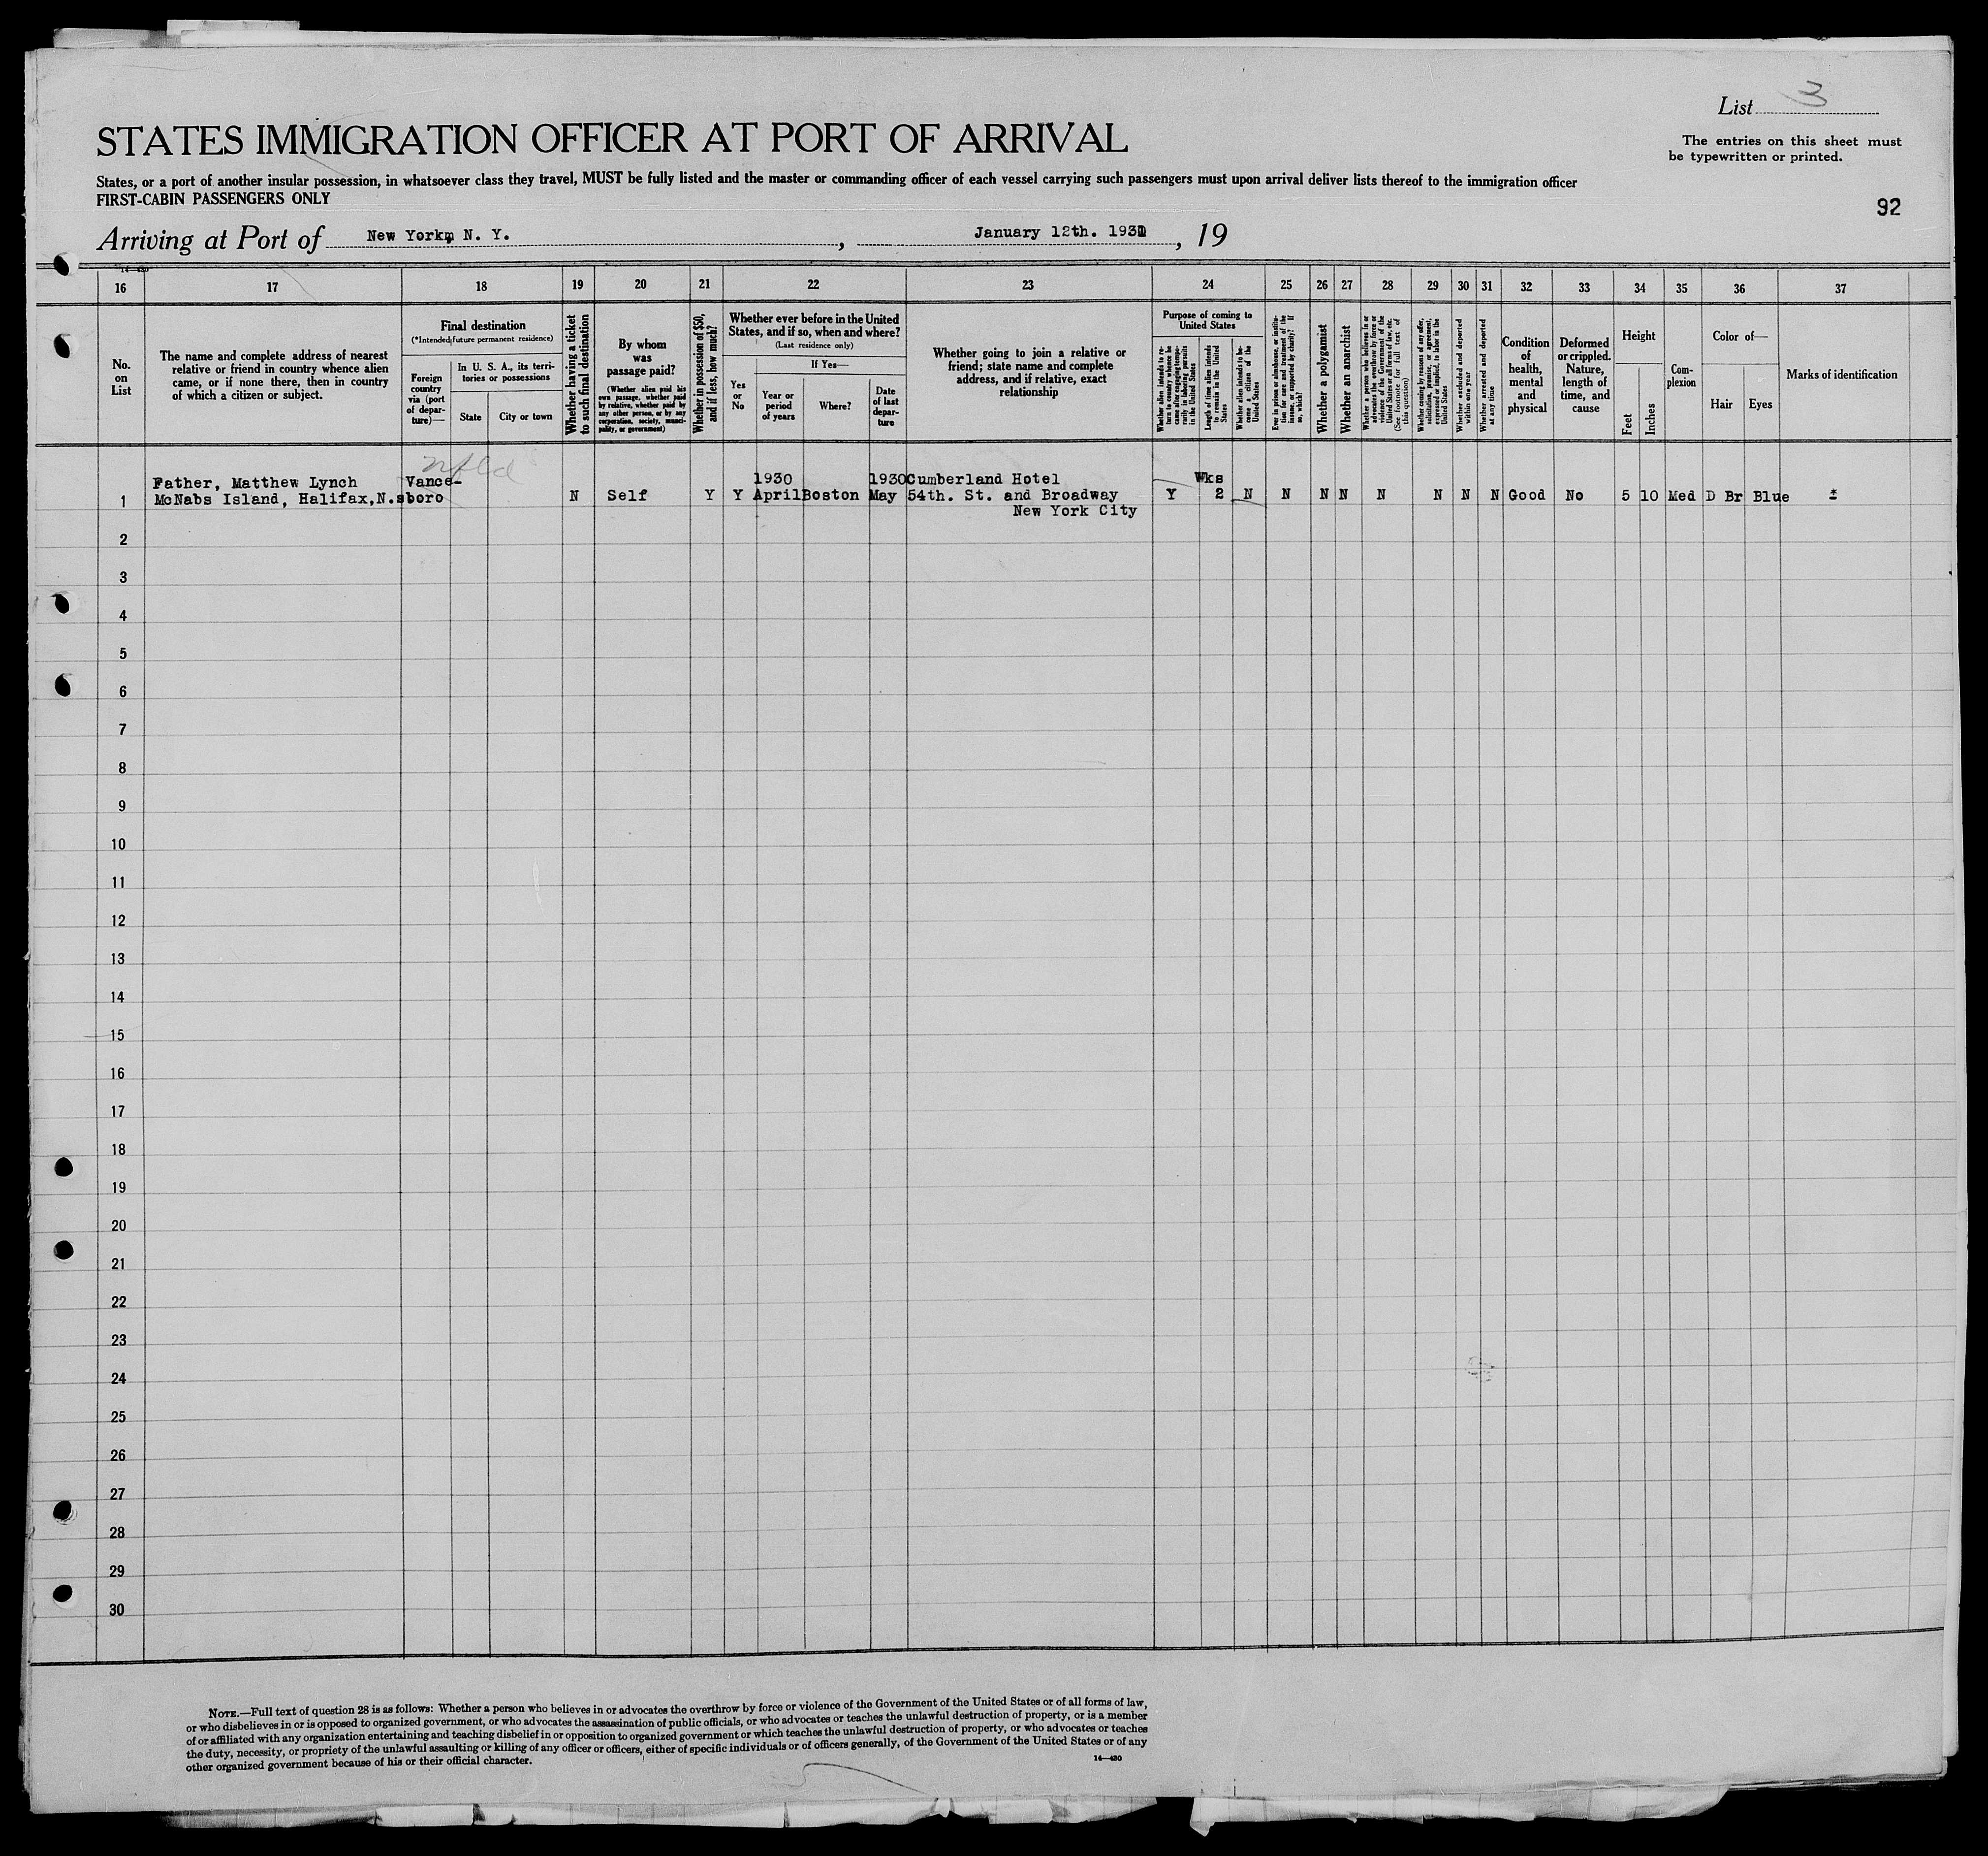 List 3
STATES IMMIGRATION OFFICER AT PORT OF ARRIVAL
The entries on this sheet must
be typewritten or printed.
States, or a port of another insular possession, in whatsoever class they travel, MUST be fully listed and the master or commanding officer of each vessel carrying such passengers must upon arrival deliver lists thereof to the immigration officer
FIRST-CABIN PASSENGERS ONLY
92
Arriving at Port of New York, N. Y. , January 12th. 1931, 19
14—430
16 17 18 19 20 21 22 23 24 25 26 27 28 29 30 31 32 33 34 35 36 37
No.
on
List
The name and complete address of nearest
relative or friend in country whence alien
came, or if none there, then in country
of which a citizen or subject.
Final destination
(*Intended future permanent residence)
Foreign
country
via (port
of depar-
ture)—
In U. S. A., its terri-
tories or possessions
State
City or town
Whether having a ticket
to such final destination
By whom
was
passage paid?
(Whether alien paid his
own passage, whether paid
by relative, whether paid by
any other person, or by any
corporation, society, munici-
pality, or government)
Whether in possession of $50,
and if less, how much?
Whether ever before in the United
States, and if so, when and where?
(Last residence only)
Yes
or
No
If Yes—
Year or
period
of years
Where?
Date
of last
depar-
ture
Whether going to join a relative or
friend; state name and complete
address, and if relative, exact
relationship
Purpose of coming to
United States
Whether alien intends to re-
turn to country whence he
came after engaging tempo-
rarily in laboring pursuits
in the United States
Length of time alien intends
to remain in the United
States
Whether alien intends to be-
come a citizen of the
United States
Ever in prison or almshouse, or institu-
tion for care and treatment of the
insane, or supported by charity? If
so, which?
Whether a polygamist
Whether an anarchist
Whether a person who believes in or
advocates the overthrow by force or
violence of the Government of the
United States or all forms of law, etc.
(See footnote for full text of
this question)
Whether coming by reasons of any offer,
solicitation, promise, or agreement,
expressed or implied, to labor in the
United States
Whether excluded and deported
within one year
Whether arrested and deported
at any time
Condition
of
health,
mental
and
physical
Deformed
or crippled.
Nature,
length of
time, and
cause
Height
Feet
Inches
Com-
plexion
Color of—
Hair
Eyes
Marks of identification
Nfld
1930 1930 Cumberland Hotel Wks
Father, Matthew Lynch Vance-
1 McNabs Island, Halifax,N.s boro N Self Y Y April Boston May 54th. St. and Broadway Y 2 N N N N N N N N Good No 5 10 Med D Br Blue *
New York City
2
3
4
5
6
7
8
9
10
11
12
13
14
15
16
17
18
19
20
21
22
23
24
25
26
27
28
29
30
NOTE.—Full text of question 28 is as follows: Whether a person who believes in or advocates the overthrow by force or violence of the Government of the United States or of all forms of law,
or who disbelieves in or is opposed to organized government, or who advocates the assassination of public officials, or who advocates or teaches the unlawful destruction of property, or is a member
of or affiliated with any organization entertaining and teaching disbelief in or opposition to organized government or which teaches the unlawful destruction of property, or who advocates or teaches
the duty, necessity, or propriety of the unlawful assaulting or killing of any officer or officers, either of specific individuals or of officers generally, of the Government of the United States or of any
other organized government because of his or their official character.
14—430